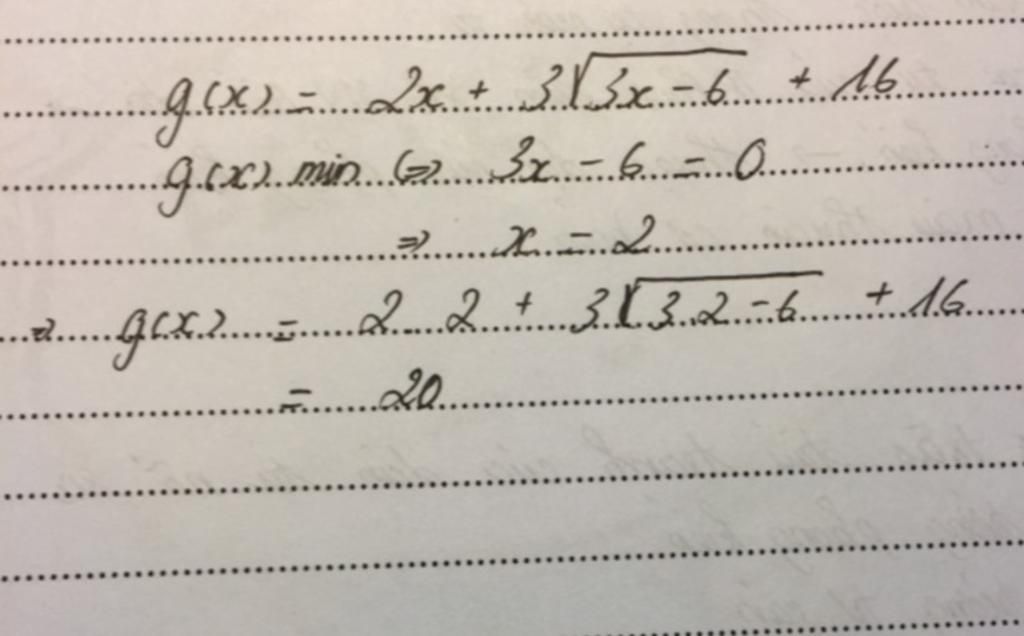 g(x) = 2x + 3√(3x - 6) + 16
g(x) min (=> 3x - 6 = 0
=> x = 2
=> g(x) = 2 . 2 + 3√(3.2 - 6) + 16
= 20